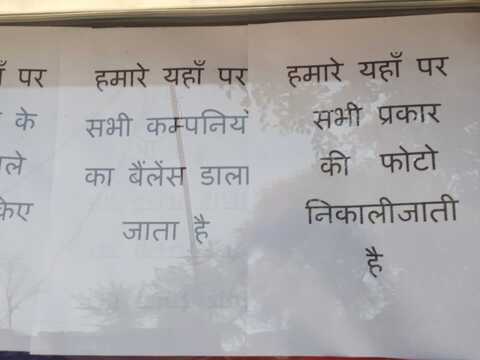 पर
के
हमारे यहाँ पर
सभी कम्पनियो
का बैंलेंस डाला
जाता है
हमारे यहाँ पर
सभी प्रकार
की फोटो
निकालीजाती
है